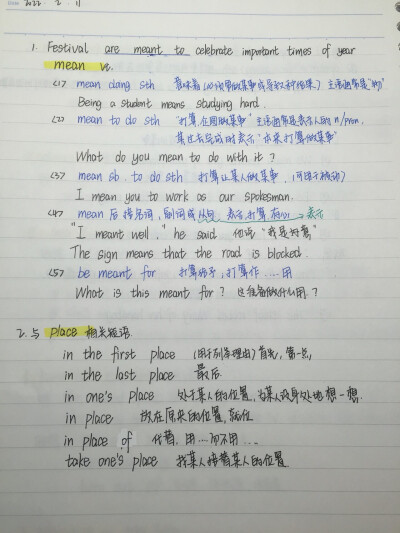 2022. 2. 11
1. Festival are meant to celebrate important times of year
mean vt.
<1> mean doing sth 意味着
Being a student means studying hard.
<2> mean to do sth "打算,企图做某事"
过去完成时表示"本来打算做某事"
What do you mean to do with it ?
<3> mean sb. to do sth 打算让某人做某事. (可用于被动)
I mean you to work as our spokesman.
<4> mean 后接名词,副词或从句 表示,打算
"I meant well," he said 他说 "我是好意"
The sign means that the road is blocked.
<5> be meant for 打算给予,打算作....用
What is this meant for ? 这准备做什么用.?
2. 与 place 相关短语.
in the first place (用于列举理由) 首先,第一点,
in the last place 最后.
in one's place 处于某人的位置,为某人设身处地想一想.
in place 放在原来的位置,就位
in place of 代替,用....而不用....
take one's place 找某人接替某人的位置